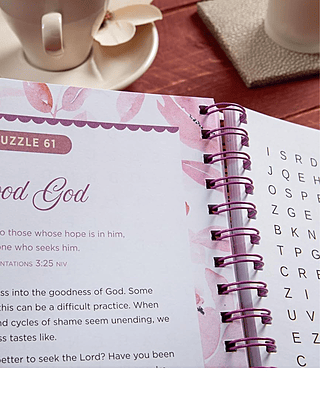 UZZLE 61
ood God
o those whose hope is in him,
one who seeks him.
NTATIONS 3:25 NIV
ss into the goodness of God. Some
this can be a difficult practice. When
nd cycles of shame seem unending, we
ss tastes like.
etter to seek the Lord? Have you been
I S R D
J Q E H
O S P E
Z G E
B K N
T P G
C R E
Z I
U V
E Z
C